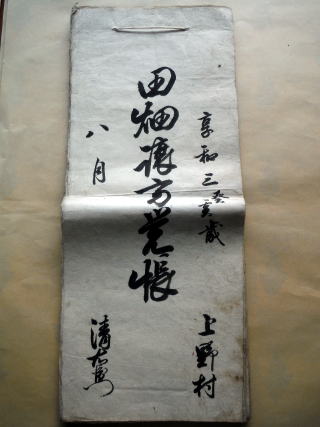 享和三癸亥歳
田畑譲方覚帳
八月
上野村
清右衛門